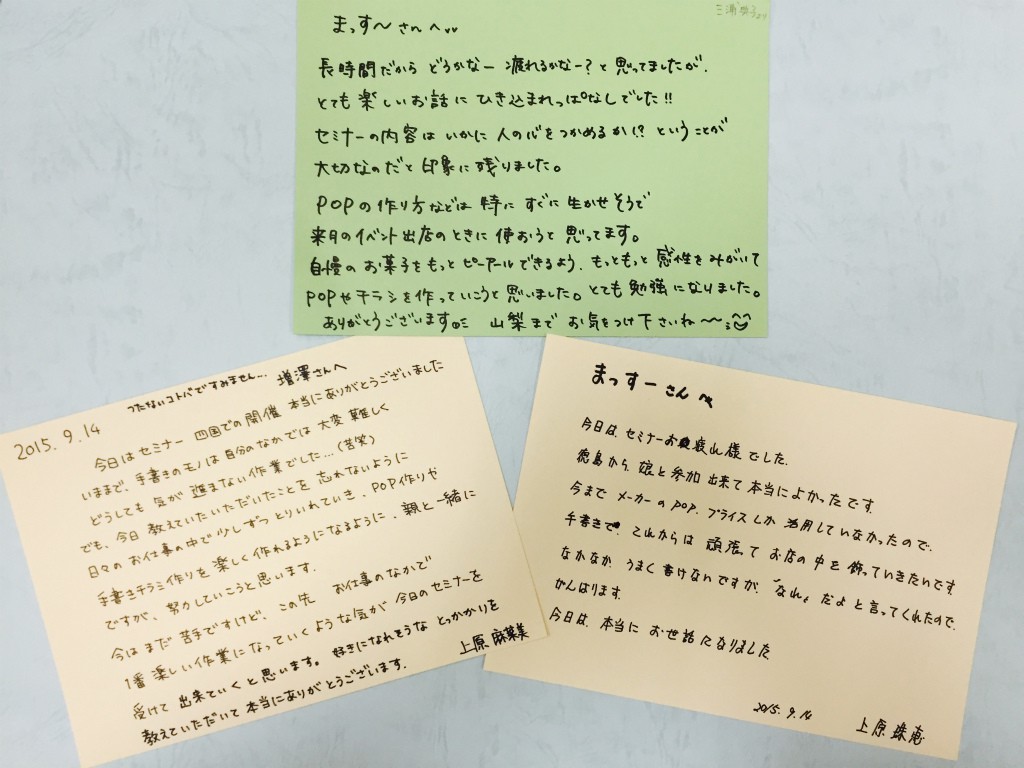 三浦
まっす～さんへ
長時間だから どうかなー 疲れるかなー？と思ってましたが、
とても楽しいお話に ひき込まれっぱなしでした!!
セミナーの内容は いかに 人の心を つかめるか!? ということが
大切なのだと 印象に残りました。
POPの作り方などは 特に すぐに 生かせそうで
来月のイベント出店のときに 使おうと 思ってます。
自慢の お菓子をもっと ピーアールできるよう、もっともっと 感性をみがいて
POPやチラシを作っていこうと思いました。とても勉強になりました。
ありがとうございます 山梨まで お気をつけ下さいね～～
つたないコトバですみません… 増澤さんへ
2015.9.14
今日はセミナー 四国での開催 本当にありがとうございました
いままで、手書きのモノは自分のなかでは 大変 難しく
どうしても 気が 進まない作業でした…(苦笑)
でも、今日 教えていただいたことを 忘れないように
日々の お仕事の中で少しずつ とりいれていき、POP作りや
手書きチラシ作りを 楽しく作れるようになるように、親と一緒に
ですが、努力していこうと思います。
今はまだ 苦手ですけど、この先 お仕事のなかで
1番 楽しい作業に なっていくような気が 今日のセミナーを
受けて 出来ていくと思います。好きになれそうな とっかかりを
教えていただいて 本当にありがとうございます。
上原 麻菜美
まっすーさんへ
今日は、セミナーお疲れ様でした。
徳島から 娘と参加出来て 本当によかったです。
今まで メーカーのPOP、プライスしか 活用していなかったので、
手書きで、これからは 頑張って お店の中を 飾っていきたいです
なかなか うまく書けないですが、「なれ」だよ と言ってくれたので、
がんばります。
今日は、本当に お世話になりました
2015.9.14
上原 珠恵